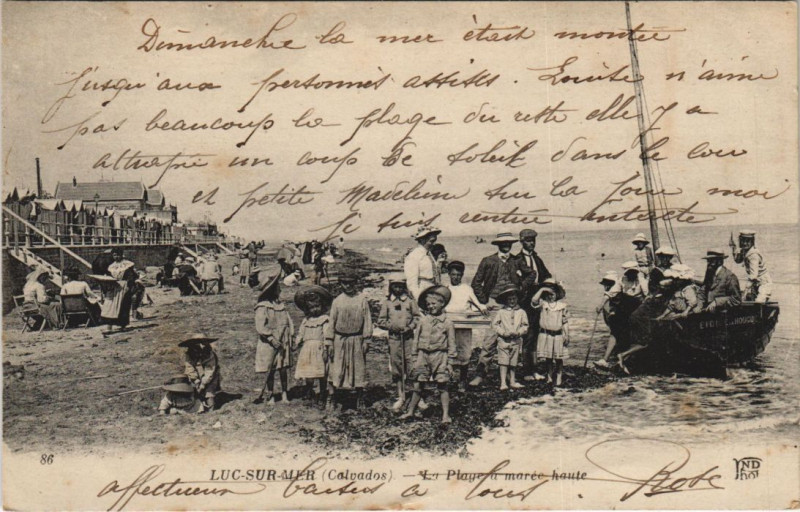 Dimanche la mer était montée
jusqu'aux personnes assises. Louise n'aime
pas beaucoup la plage du reste elle y a
attrapé un coup de soleil dans le cou
et petite Madeleine sur la joue moi
je suis rentrée intacte
EYE ROUGE
86
LUC-SUR-MER (Calvados) — La Plage à marée haute
ND Phot
affectueux baisers a tous